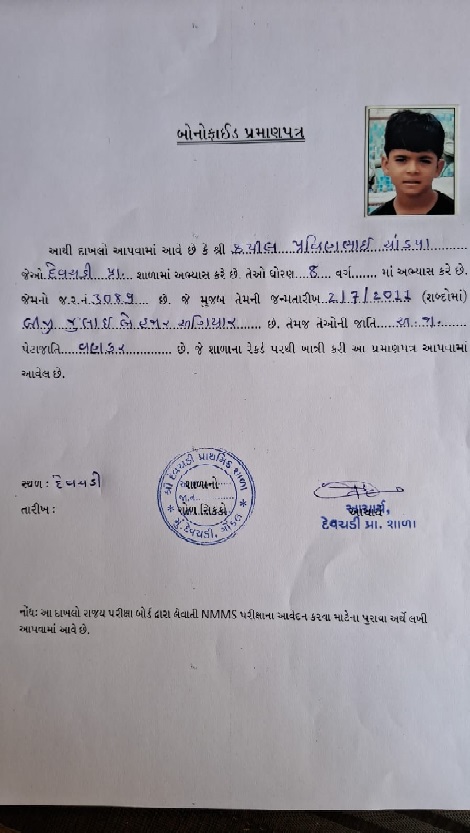 બોનોફાઈડ પ્રમાણપત્ર
આથી દાખલો આપવામાં આવે છે કે શ્રી કપીલ પ્રવિણભાઈ ચાંડપા
જેઓ દેવચડી પ્રા. શાળામાં અભ્યાસ કરે છે. તેઓ ધોરણ 8 વર્ગ....... માં અભ્યાસ કરે છે.
જેમનો જ.ર.નં. 3089 છે. જે મુજબ તેમની જન્મતારીખ 2/7/2011 (શબ્દોમાં)
બીજી જુલાઈ બે હજાર અગિયાર છે. તેમજ તેઓની જાતિ અ.જા.
પેટાજાતિ વણકર છે. જે શાળાના રેકર્ડ પરથી ખાત્રી કરી આ પ્રમાણપત્ર આપવામાં
આવેલ છે.
સ્થળ : દેવચડી
તારીખ :
શ્રી દેવચડી પ્રાથમિક શાળા
શાળાનો
ગોળ સિક્કો
મુ. દેવચડી, ગોંડલ
આચાર્ય,
દેવચડી પ્રા. શાળા
નોંધ: આ દાખલો રાજ્ય પરીક્ષા બોર્ડ દ્વારા લેવાતી NMMS પરીક્ષાના આવેદન કરવા માટેના પુરાવા અર્થે લખી
આપવામાં આવે છે.